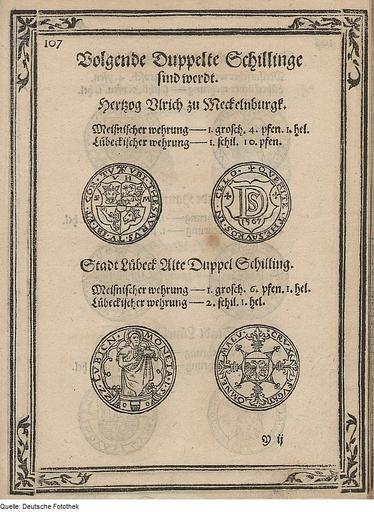 107
Volgende Duppelte Schillinge
sind werdt.
Hertzog Vlrich zu Meckelnburgk.
Meisnischer wehrung — 1. grosch. 4. pfen. 1. hel.
Lübeckischer wehrung — 1. schil. 10. pfen.
V H
DS
1567
Stadt Lübeck Alte Duppel Schilling.
Meisnischer wehrung — 1. grosch. 6. pfen. 1. hel.
Lübeckischer wehrung — 2. schil. 1. hel.
MONETA
LVBICEN
CRVX
OMNE
MALV
D ij
Quelle: Deutsche Fotothek